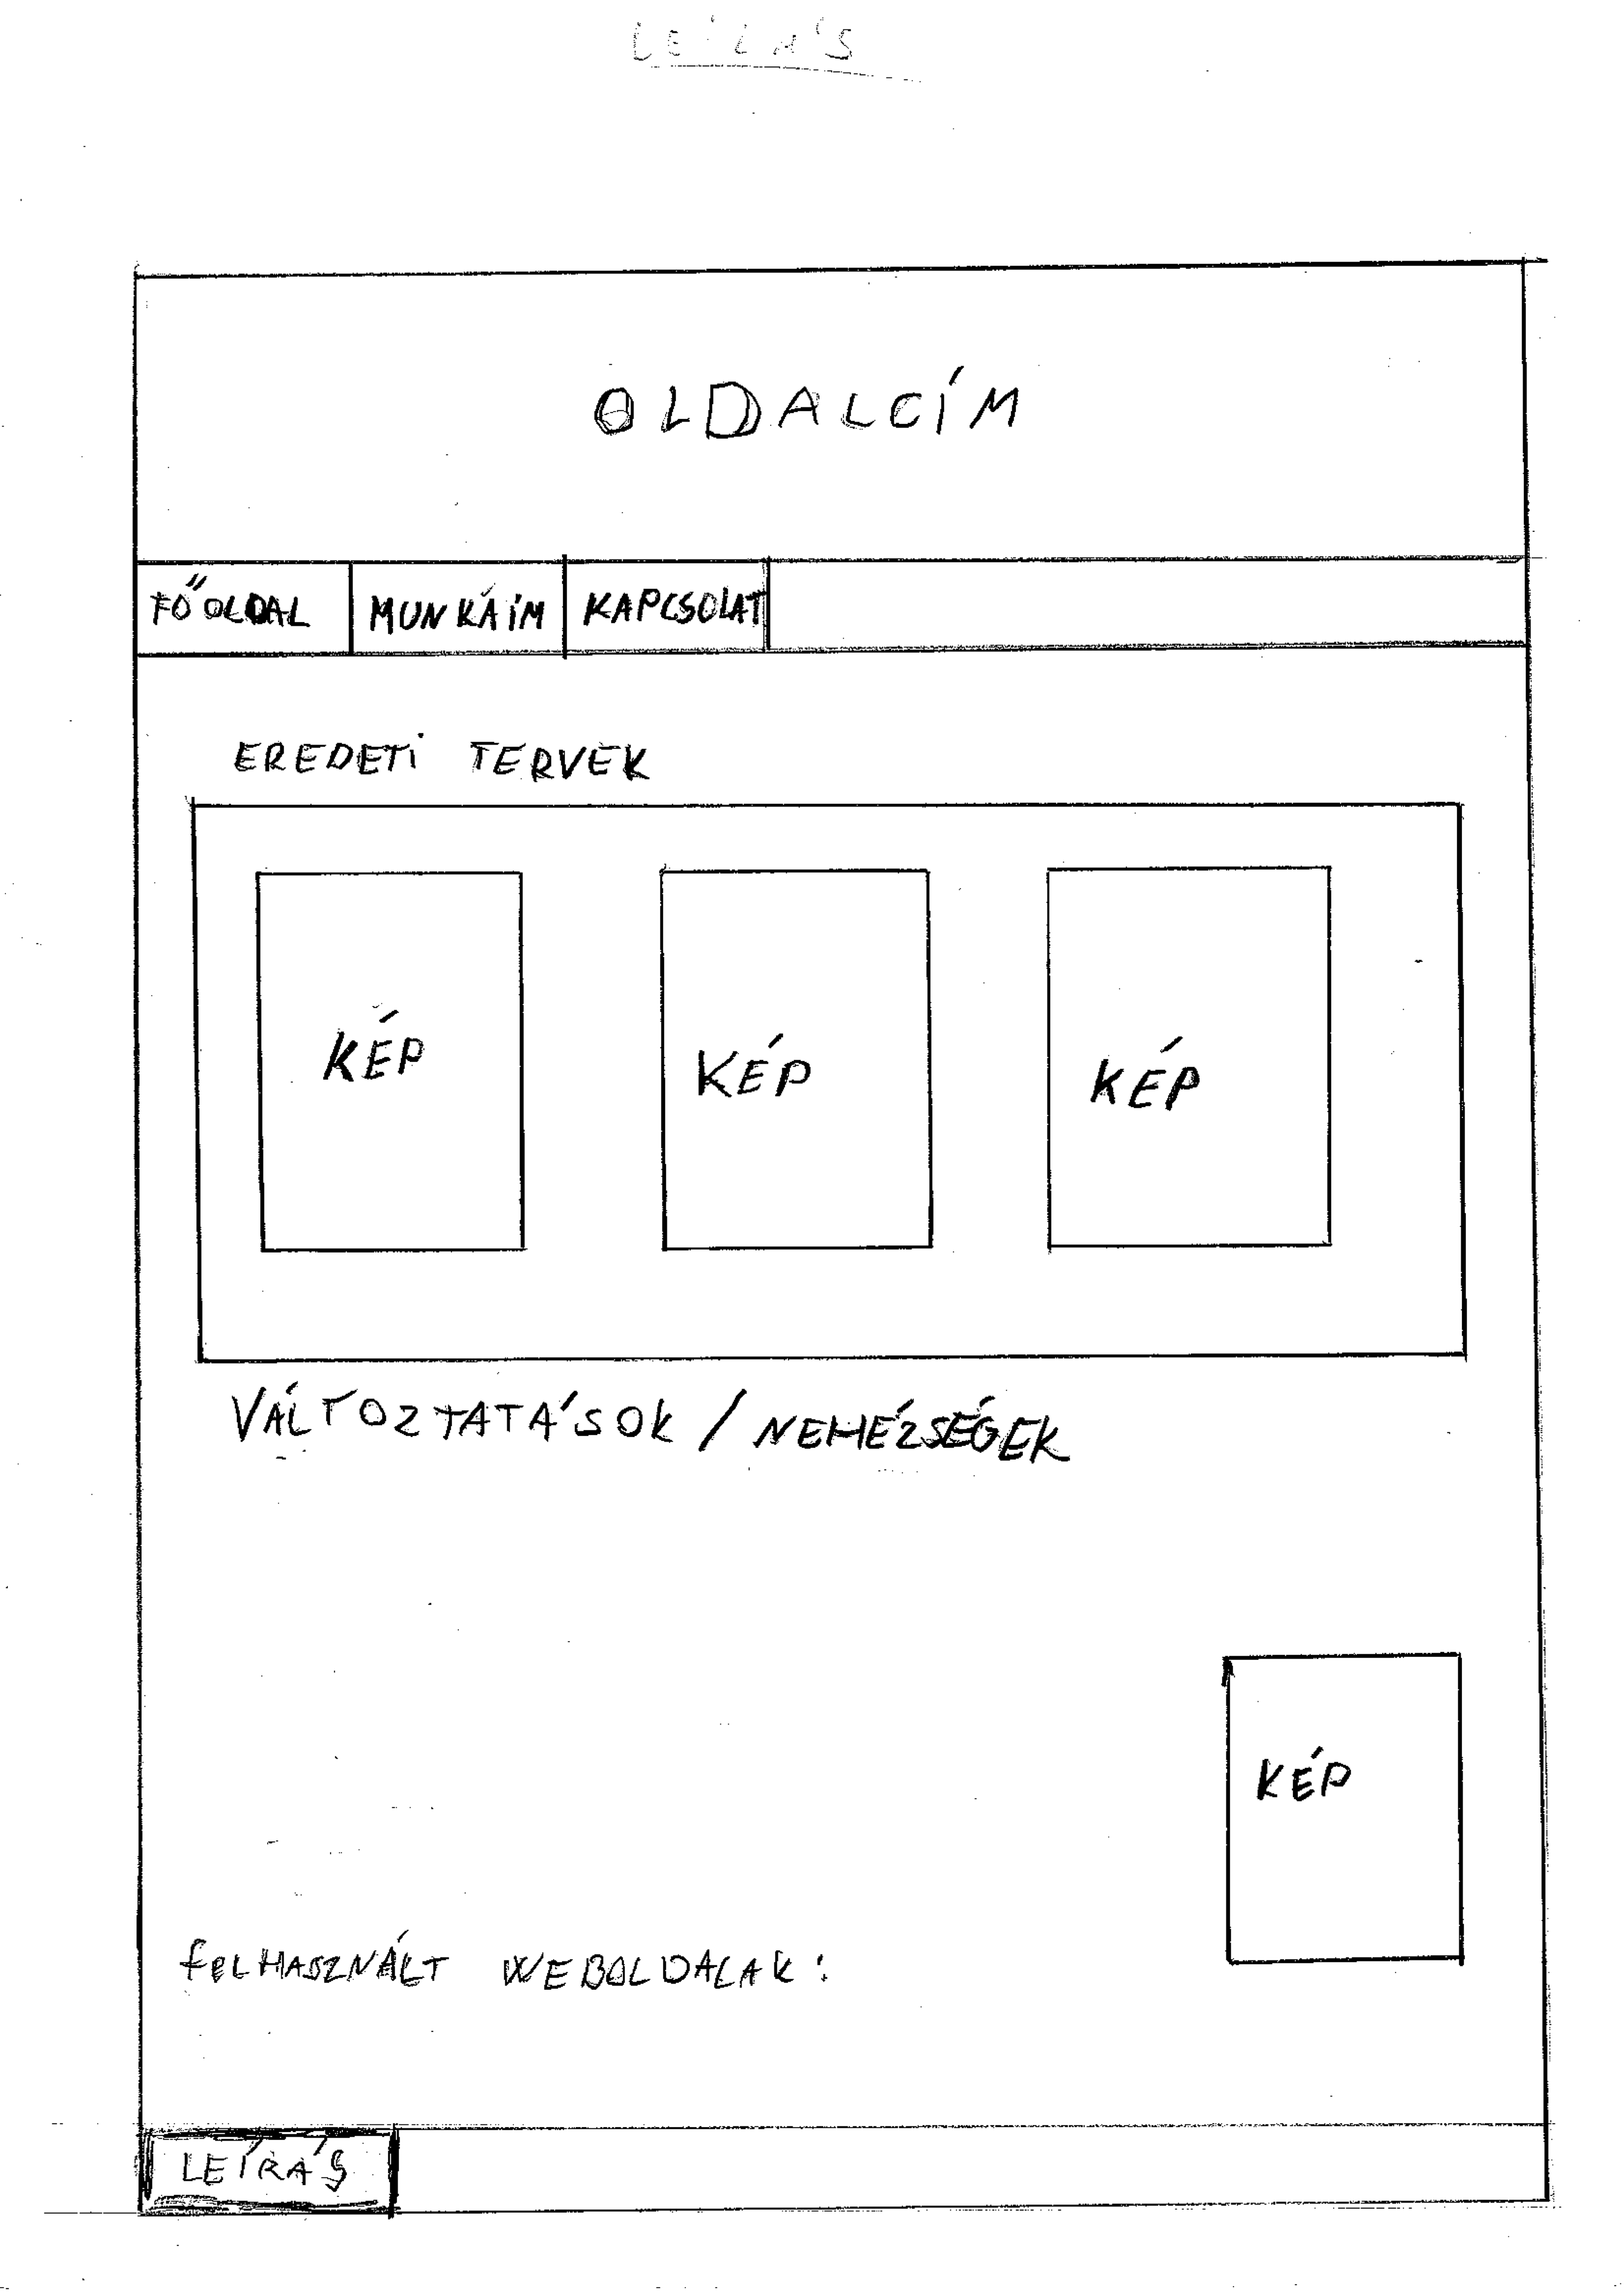 LEÍRÁS
OLDALCÍM
FŐOLDAL MUNKÁIM KAPCSOLAT
EREDETI TERVEK
KÉP KÉP KÉP
VÁLTOZTATÁSOK / NEHÉZSÉGEK
KÉP
FELHASZNÁLT WEBOLDALAK:
LEÍRÁS